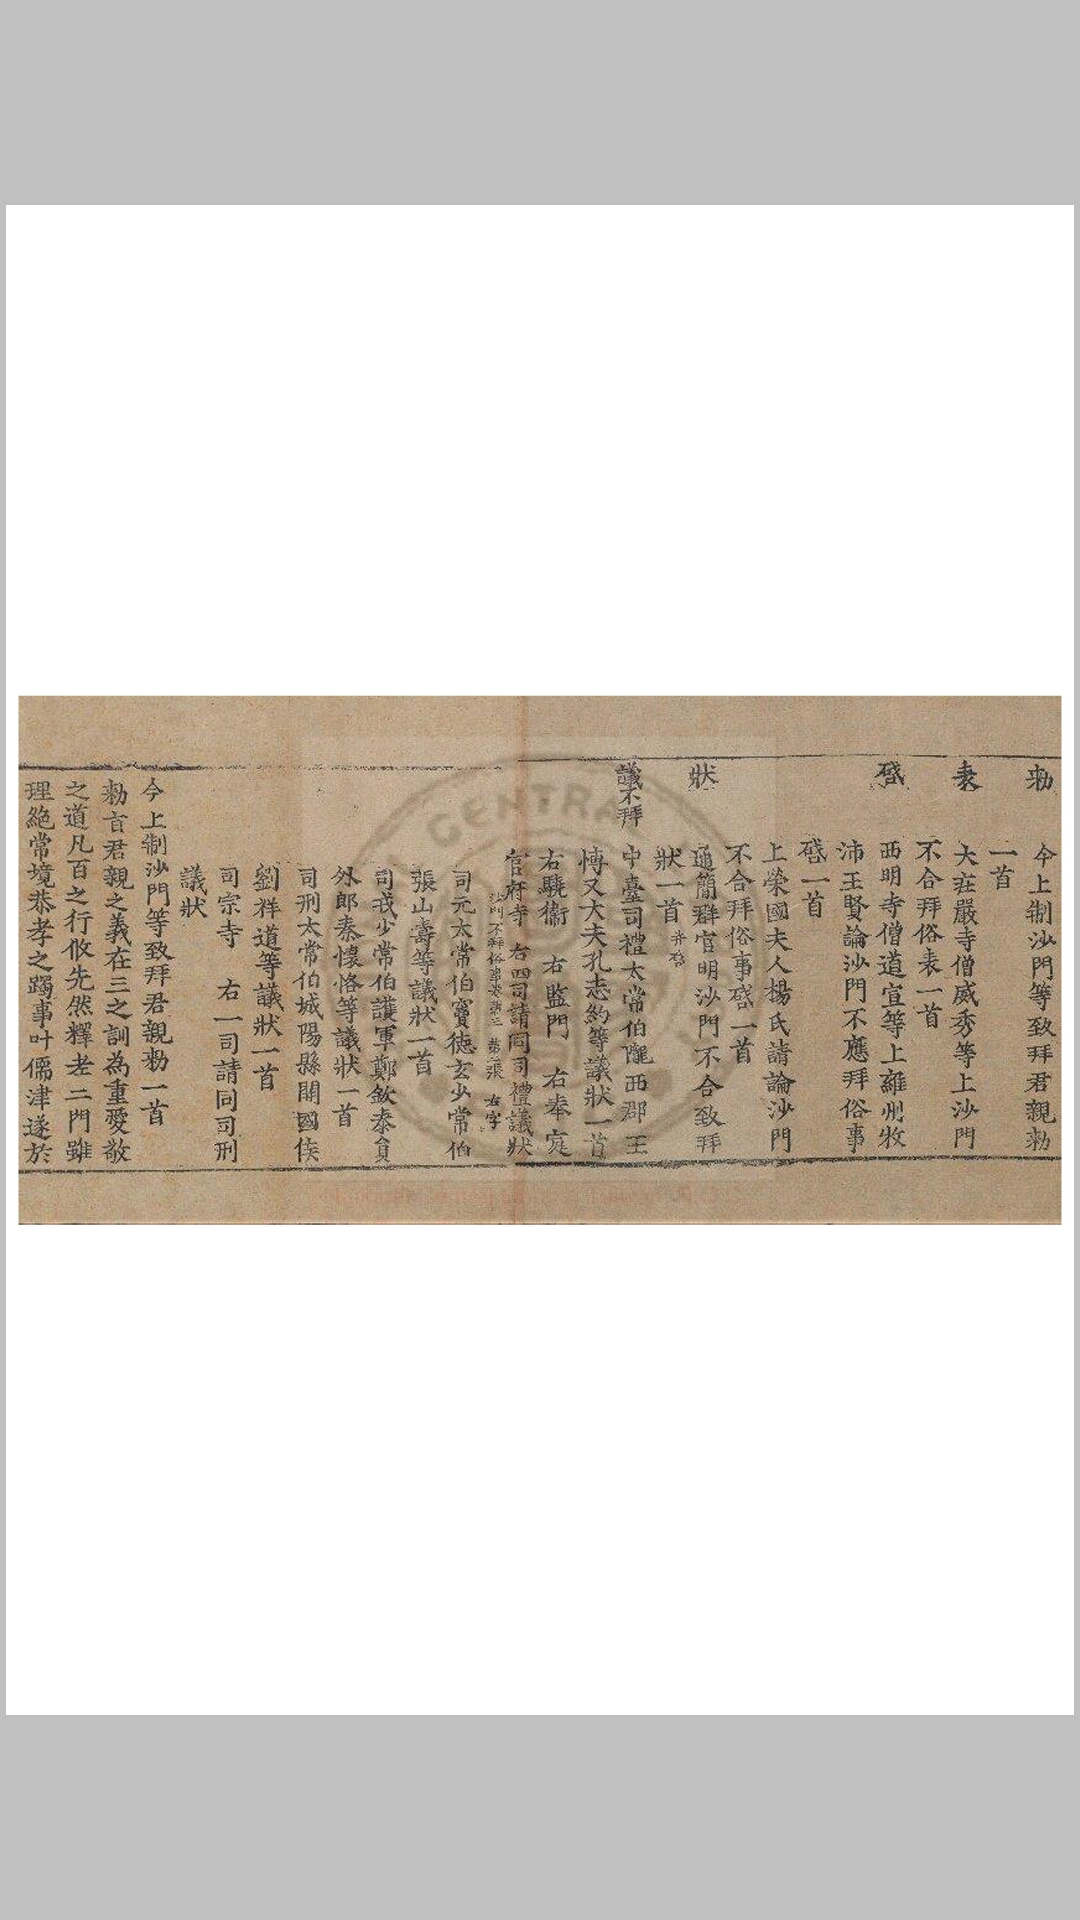 勑
今上制沙門等致拜君親勑
一首
表
大莊嚴寺僧威秀等上沙門
不合拜俗表一首
啓
西明寺僧道宣等上雍州牧
沛王賢論沙門不應拜俗事
啓一首
上榮國夫人楊氏請論沙門
不合拜俗事啓一首
狀
通簡群官明沙門不合致拜
狀一首 并啓
議不拜
中臺司禮太常伯隴西郡王
博叉大夫孔志約等議狀一首
右驍衛 右監門 右奉宸
官府寺 右四司請同司禮議狀
沙門不拜俗 第三 第二張 右字
司元太常伯竇德玄少常伯
張山壽等議狀一首
司戎少常伯護軍鄭欽泰員
外郎秦懷恪等議狀一首
司刑太常伯城陽縣開國侯
劉祥道等議狀一首
司宗寺 右一司請同司刑
議狀
今上制沙門等致拜君親勑一首
勑旨君親之義在三之訓為重愛敬
之道凡百之行攸先然釋老二門雖
理絶常境恭孝之躅事叶儒津遂於
CENTRAL